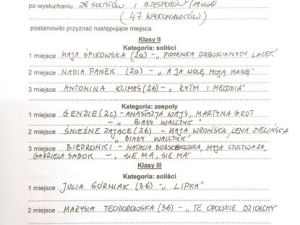 po wysłuchaniu 28 solistów i zespołów
(47 WYKONAWCÓW)
postanowiło przyznać następujące miejsca
Klasy II
Kategoria: soliści
1 miejsce MAJA SPIKOWSKA (2a) – „PIOSENKA DREWNIANYCH LALEK"
2 miejsce NADIA PANEK (2a) – „A JA WOLĘ MOJĄ MAMĘ"
3 miejsce ANTONINA KLIMAS (2b) – „RYTM I MELODIA"
Kategoria: zespoły
1 miejsce GENZIE (2c) – ANASTAZJA WAJS, MARTYNA GROT
– „BIAŁY WALCZYK"
2 miejsce ŚNIEŻNE ZAJĄCE (2b) – MAJA WROŃSKA, LENA ZIELIŃSKA
„BIAŁY WALCZYK"
3 miejsce BIEDRONKI – NATALIA MAJA
GABRIELA – „SIE MA, SIE MA"
Klasy III
Kategoria: soliści
1 miejsce JULIA GÓRNIAK (3b) – „LIPKA"
2 miejsce MARYSIA TEODOROWSKA (3b) – „TE OPOLSKIE DZIOŁCHY"